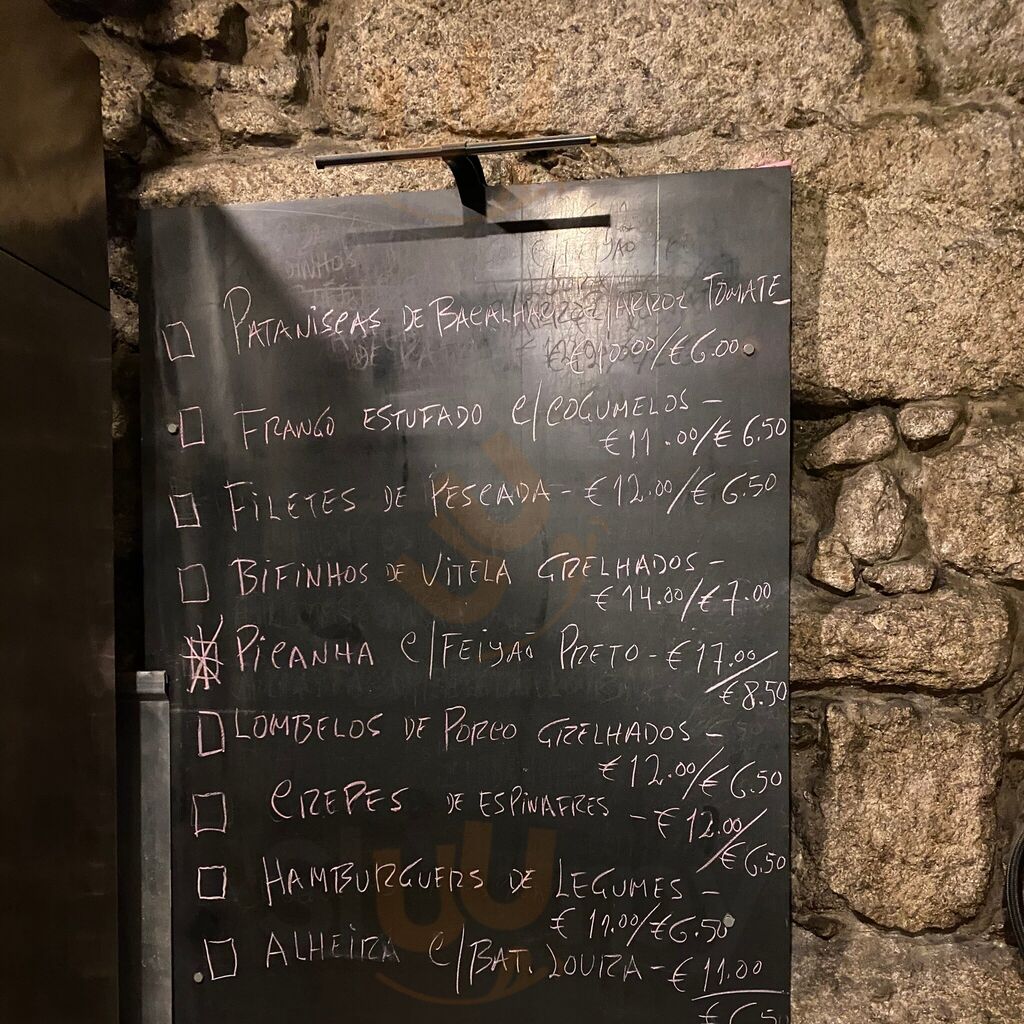 PATANISCAS DE BACALHAU C/ARROZ TOMATE
€10.00/€6.00
FRANGO ESTUFADO C/COGUMELOS -
€11.00/€6.50
FILETES DE PESCADA - €12.00/€6.50
BIFINHOS DE VITELA GRELHADOS -
€14.00/€7.00
PICANHA C/FEIJAO PRETO - €17.00/
€8.50
LOMBELOS DE PORCO GRELHADOS -
€12.00/€6.50
CREPES DE ESPINAFRES - €12.00/
€6.50
HAMBURGUERS DE LEGUMES -
€11.00/€6.50
ALHEIRA C/BAT. LOURA - €11.00
€6.5